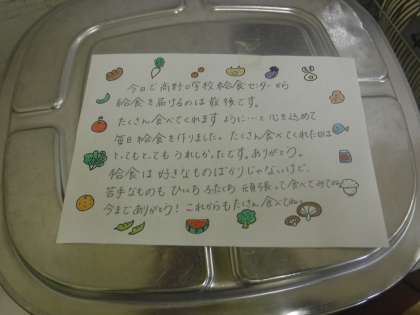 今日で高野口学校給食センターから
給食を届けるのは最後です。
たくさん食べてくれますように…と心を込めて
毎日給食を作りました。たくさん食べてくれた日は
とってもとってもうれしかったです。ありがとう。
給食は好きなものばかりじゃないけど、
苦手なものもひとくちふたくち頑張って食べてみてね。
今までありがとう!これからもたくさん食べてね。